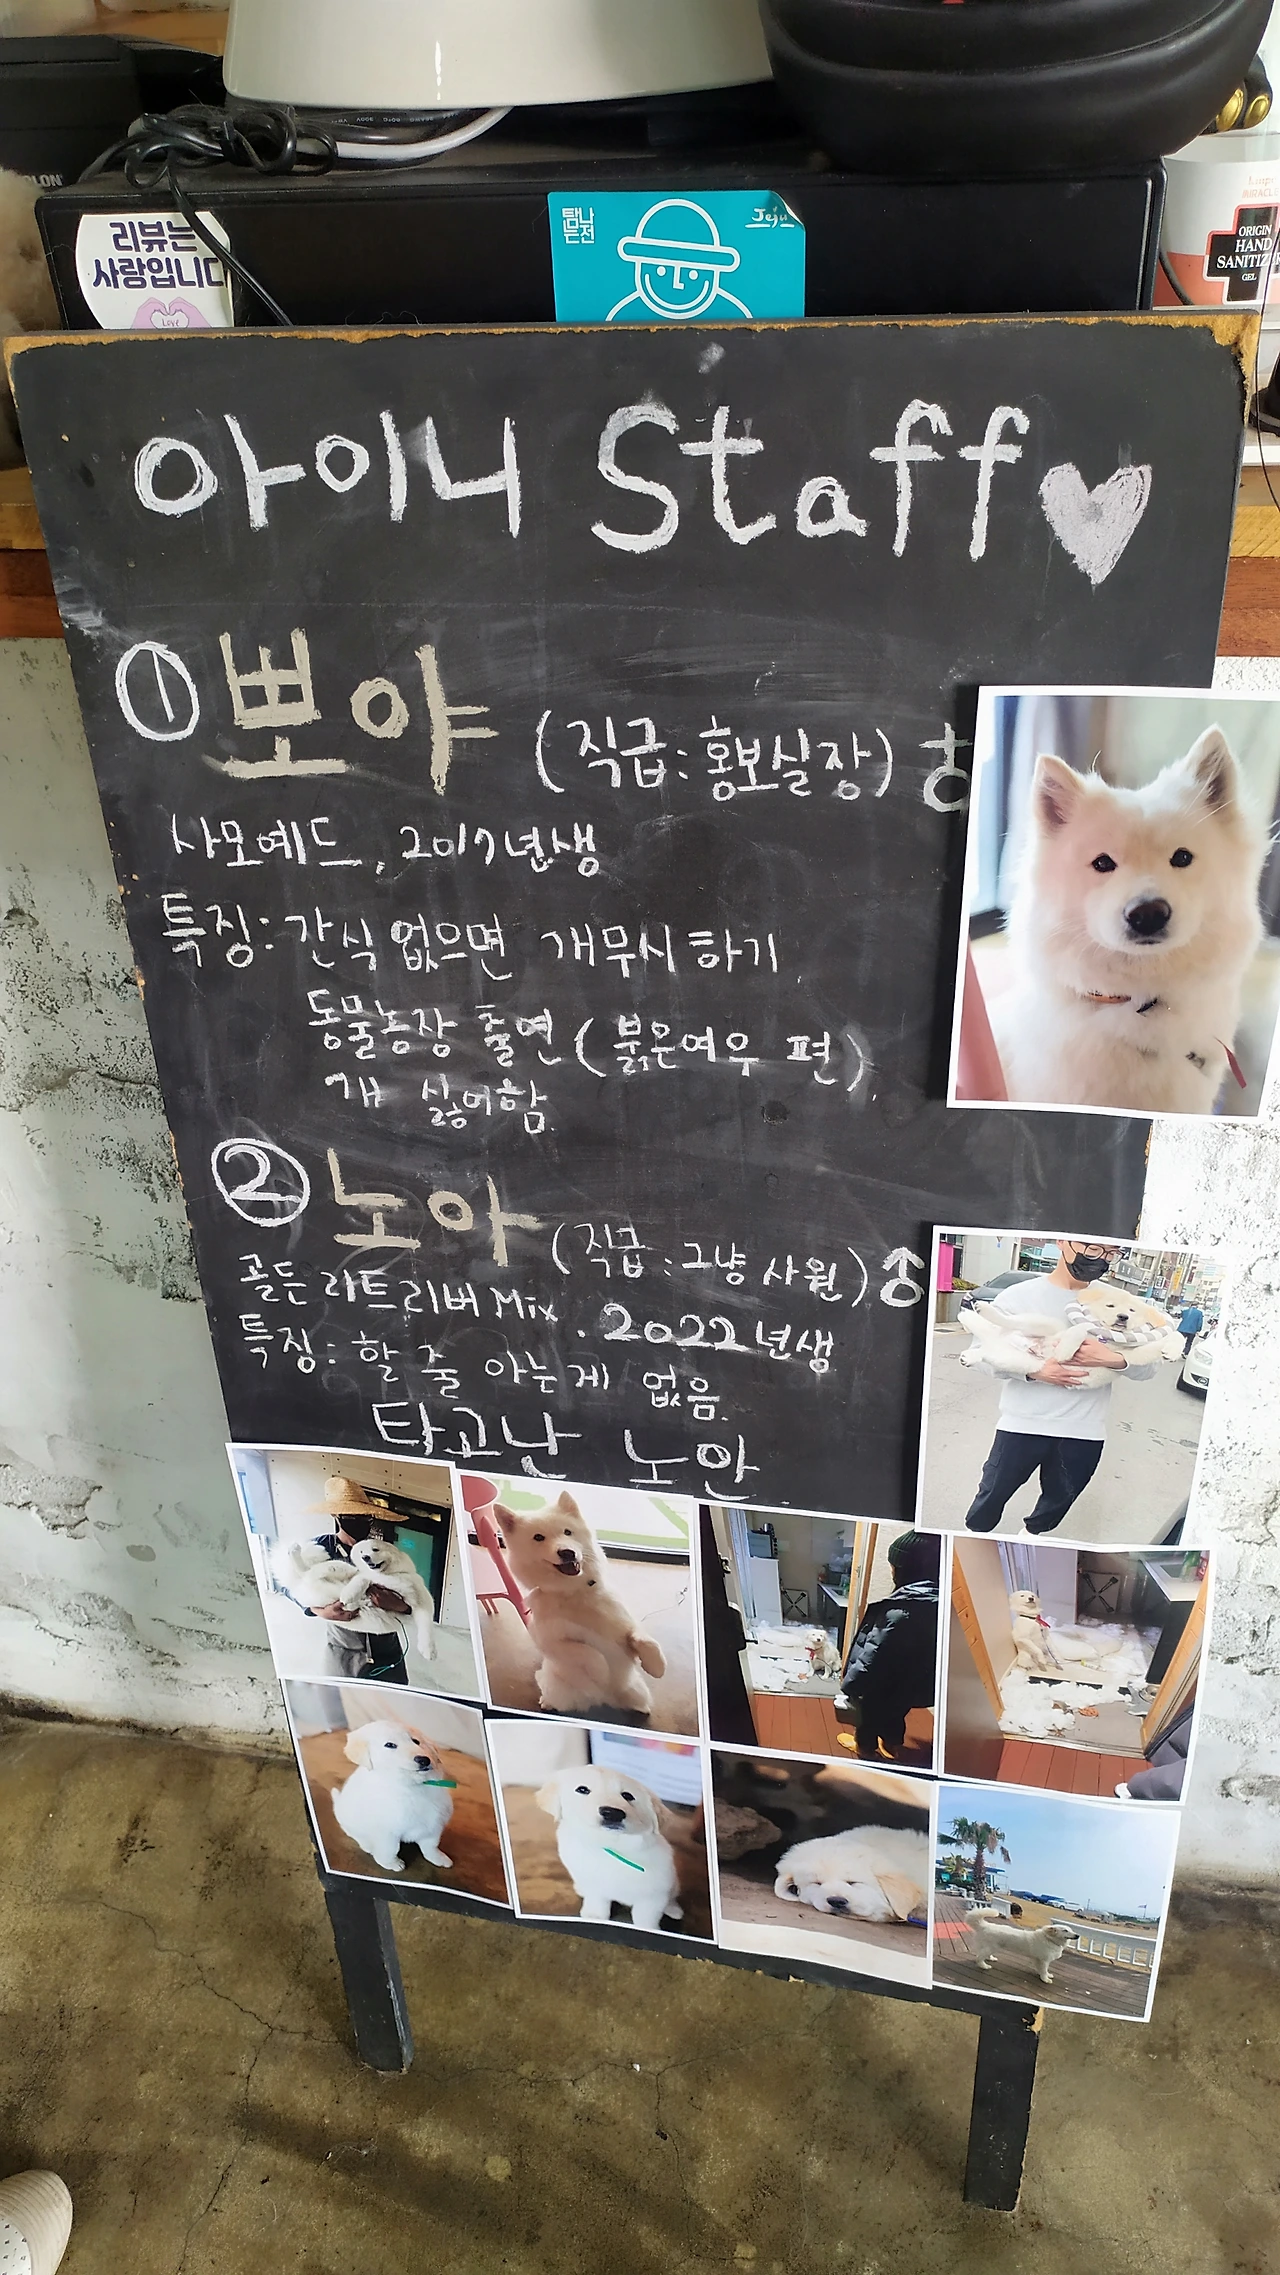 리뷰는
사랑입니다
Love
탐나
는전
Jeju
ORIGIN
HAND
SANITIZER
GEL
아이니 Staff♥
① 뽀야 (직급: 홍보실장) ♂
사모예드, 2017년생
특징: 간식 없으면 개무시하기
동물농장 출연 (붉은여우 편)
개 싫어함.
② 노아 (직급: 그냥 사원) ♂
골든 리트리버 Mix. 2022년생
특징: 할 줄 아는게 없음.
타고난 노안.